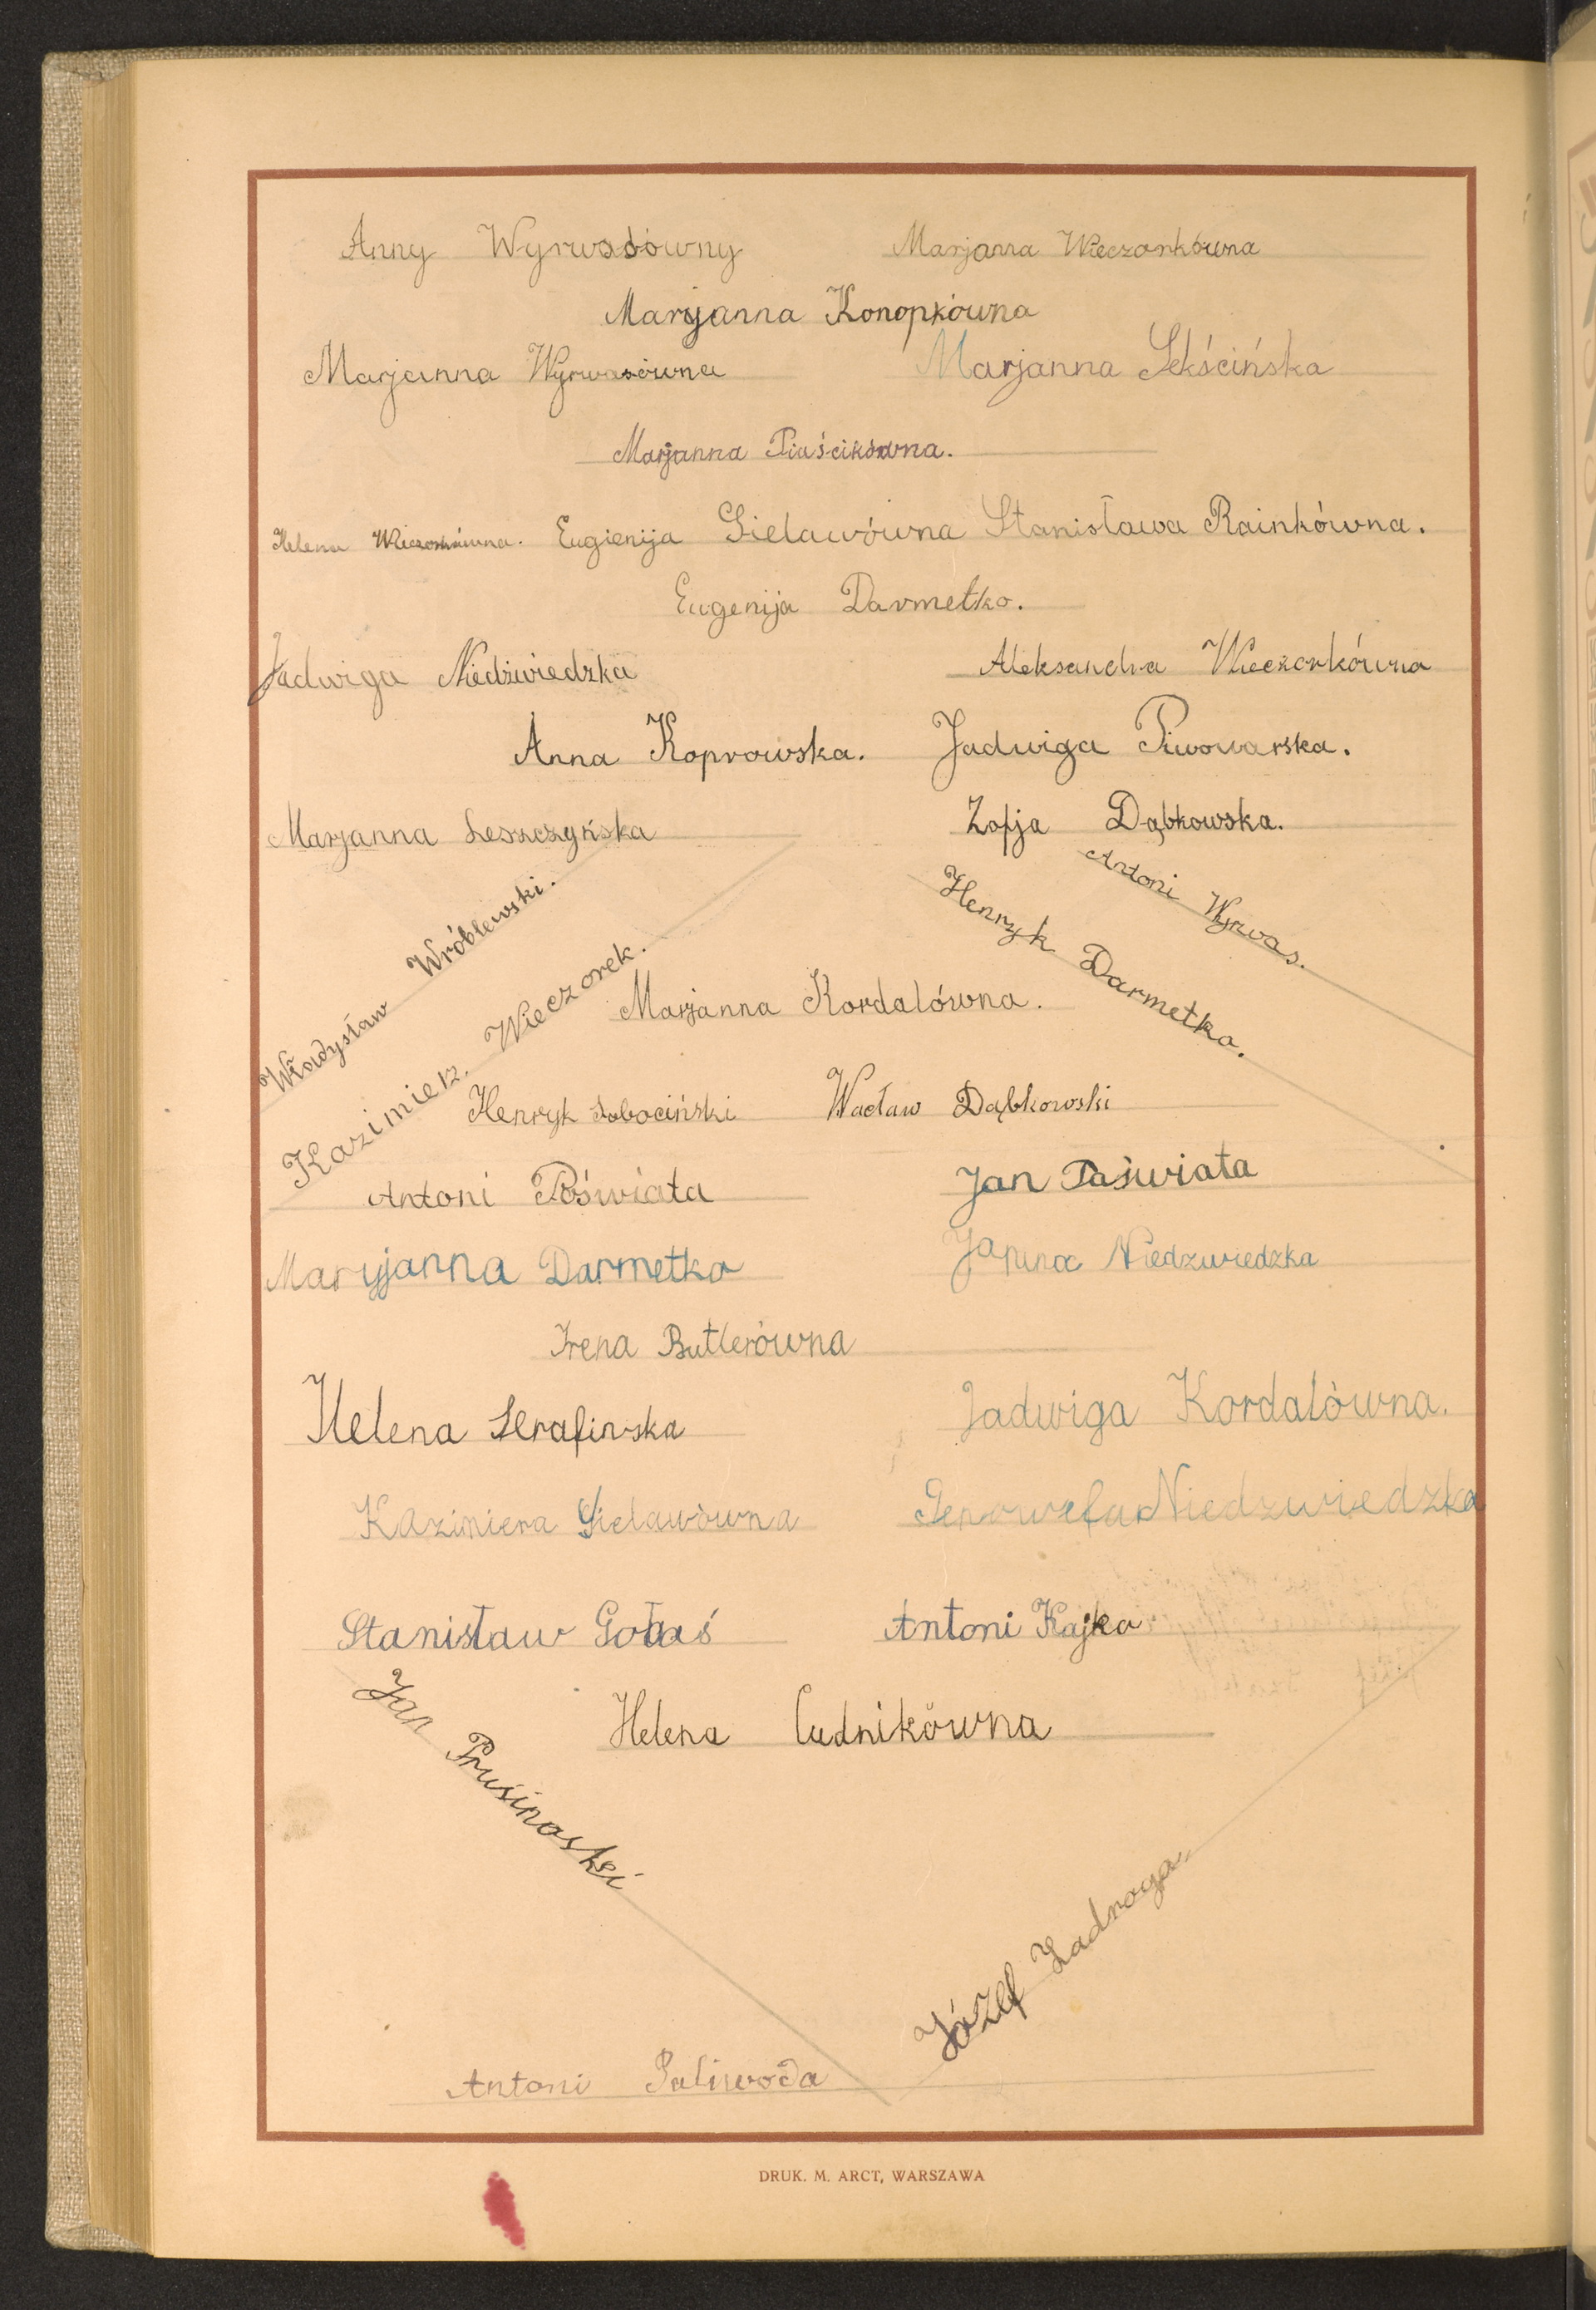 Anny Wyrwasówny Marjanna Wieczorkówna
Maryjanna Konopkówna
Marjanna Wyrwasówna Marjanna Sekścińska
Marjanna Piaścikówna.
Helena Wieczorkówna. Eugienija Gielawówna Stanisława Rainkówna.
Eugenija Darmetko.
Jadwiga Niedźwiedzka Aleksandra Wieczorkówna
Anna Koprowska. Jadwiga Piwowarska.
Marjanna Leszczyńska Zofja Dąbkowska.
Władysław Wróblewski.
Kazimierz Wieczorek.
Henryk Darmetko.
Antoni Wyrwas.
Marjanna Kordalówna.
Henryk Sobociński Wacław Dąbkowski
Antoni Pośwíata Jan Paświata
Maryjanna Darmetko Janina Niedzwiedzka
Irena Butlerówna
Helena Serafinska Jadwiga Kordalówna.
Kazimiera Gielawówna Genowefa Niedzwiedzka
Stanisław Gołaś Antoni Kajko
Jan Prusinoski
Helena Cudnikówna
Józef Zadroga
Antoni Paliwoda
DRUK. M. ARCT, WARSZAWA